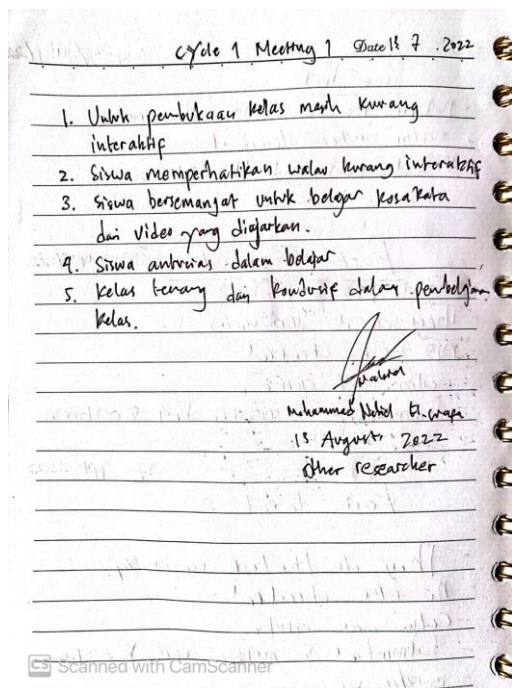 Cycle 1 Meeting 1 Date 15 7 . 2022
1. Untuk pembukaan kelas masih kurang
interaktif
2. Siswa memperhatikan walau kurang interaktif
3. Siswa bersemangat untuk belajar kosakata
dari video yang diajarkan.
4. Siswa antusias dalam belajar
5. Kelas tenang dan kondusif dalam
kelas.
Muhammad Nabil
15 Augusts 2022
other researcher
CS Scanned with CamScanner